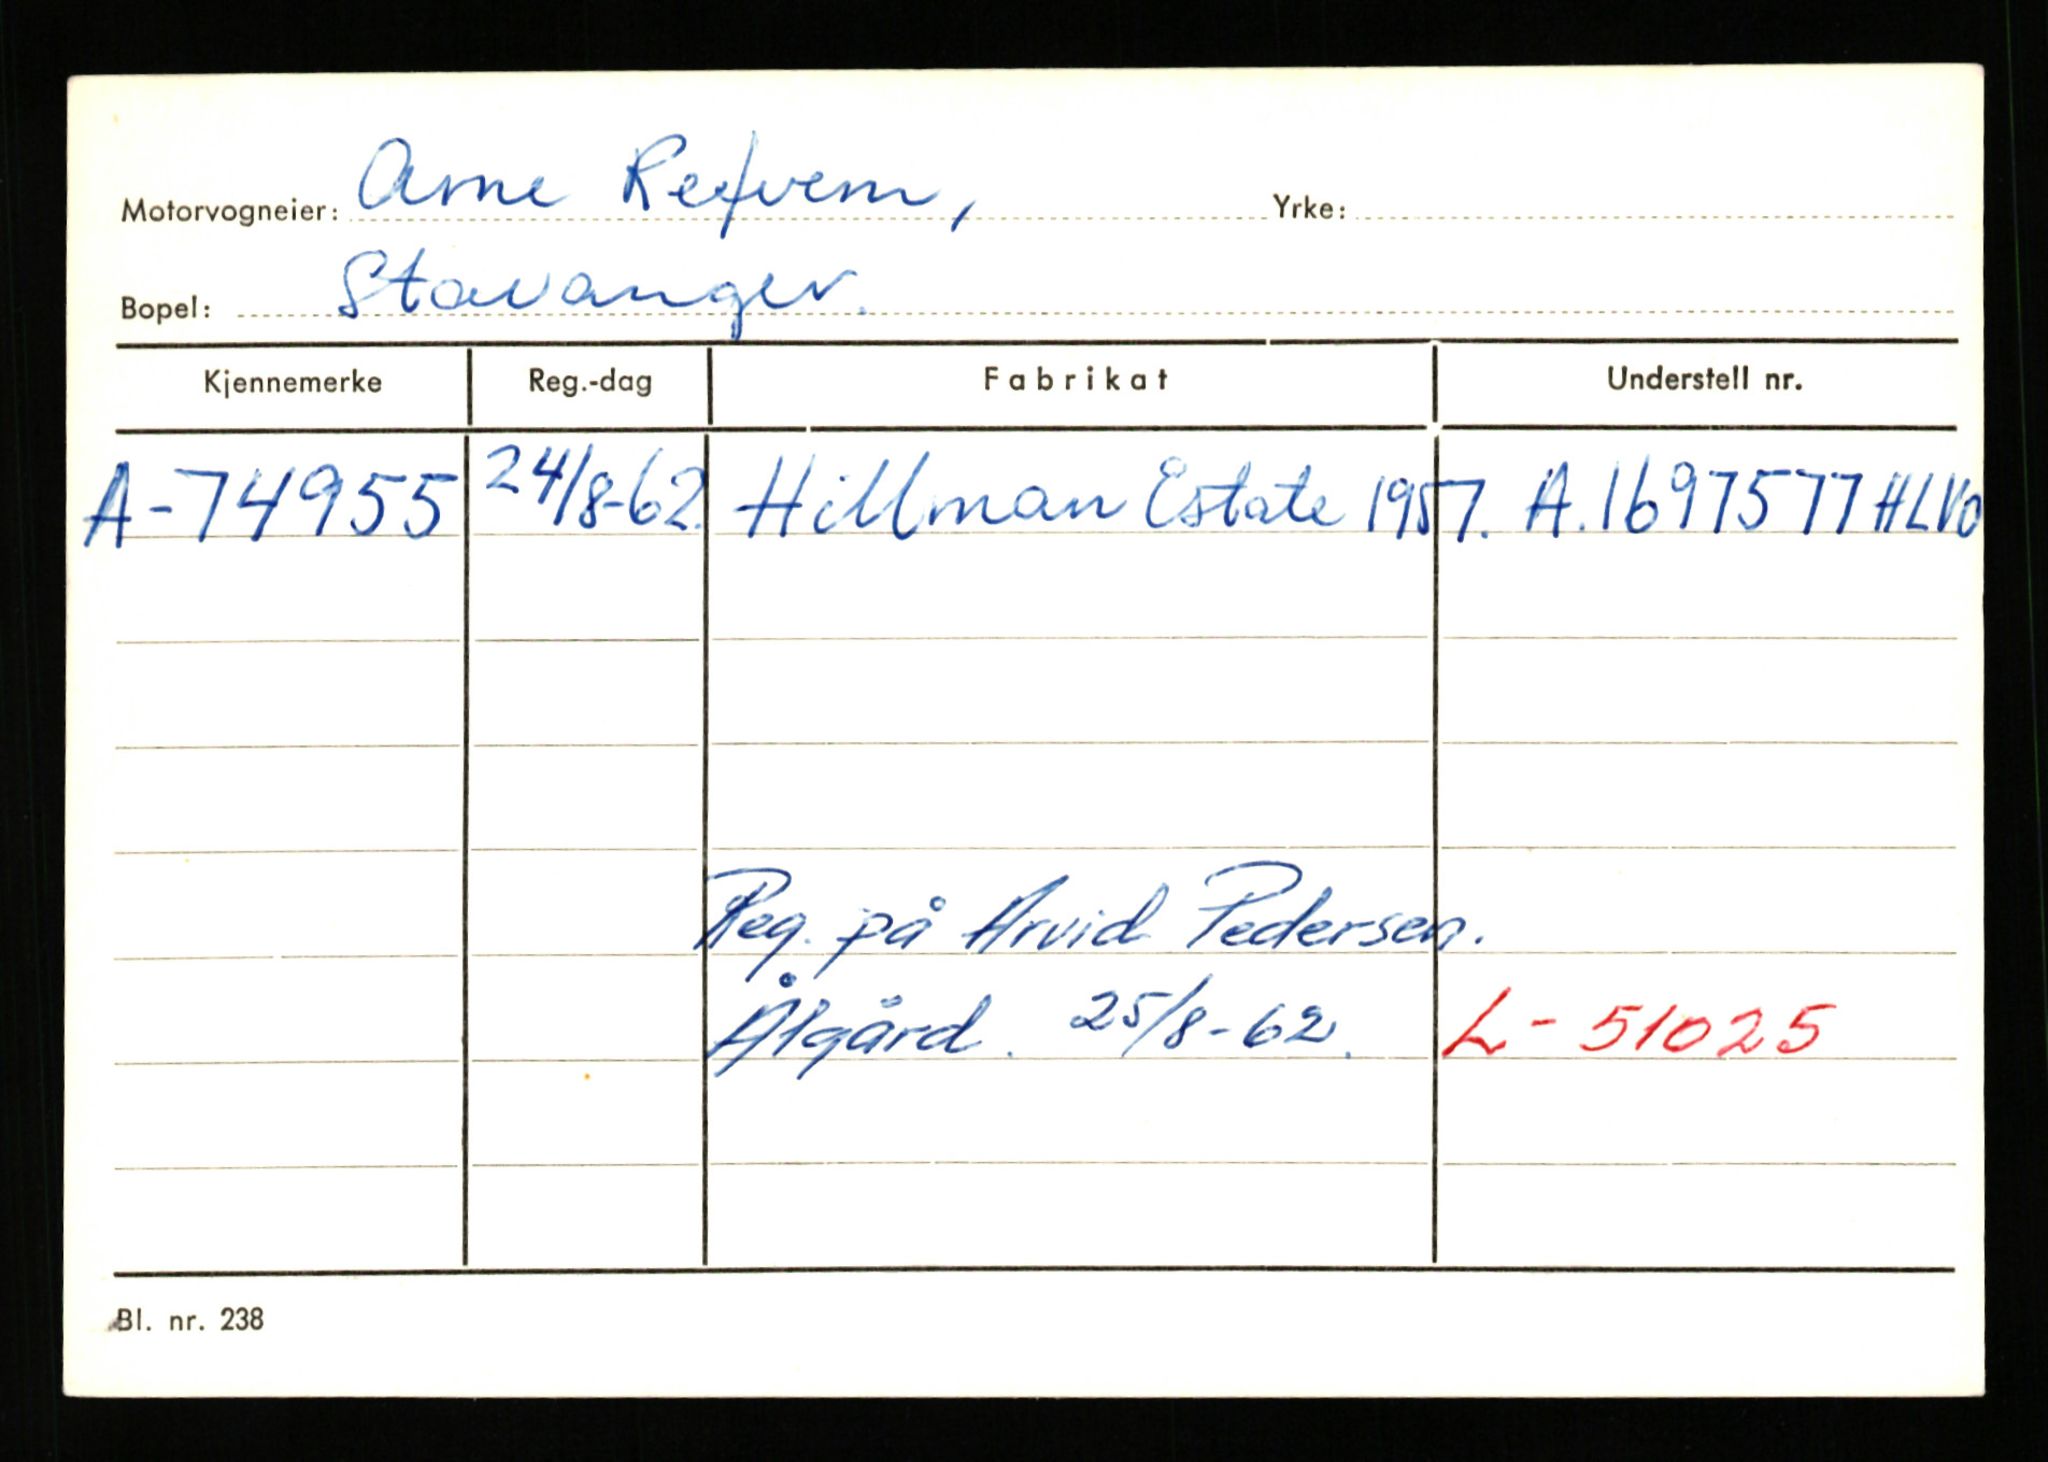 Motorvogneier: Arne Refvem, Yrke:
Bopel: Stavanger.
Kjennemerke Reg.-dag Fabrikat Understell nr.
A-74955 24/8-62. Hillman Estate 1957. A.1697577HLVO
Reg. på Arvid Pedersen.
Ålgård. 25/8-62. L-51025
Bl. nr. 238